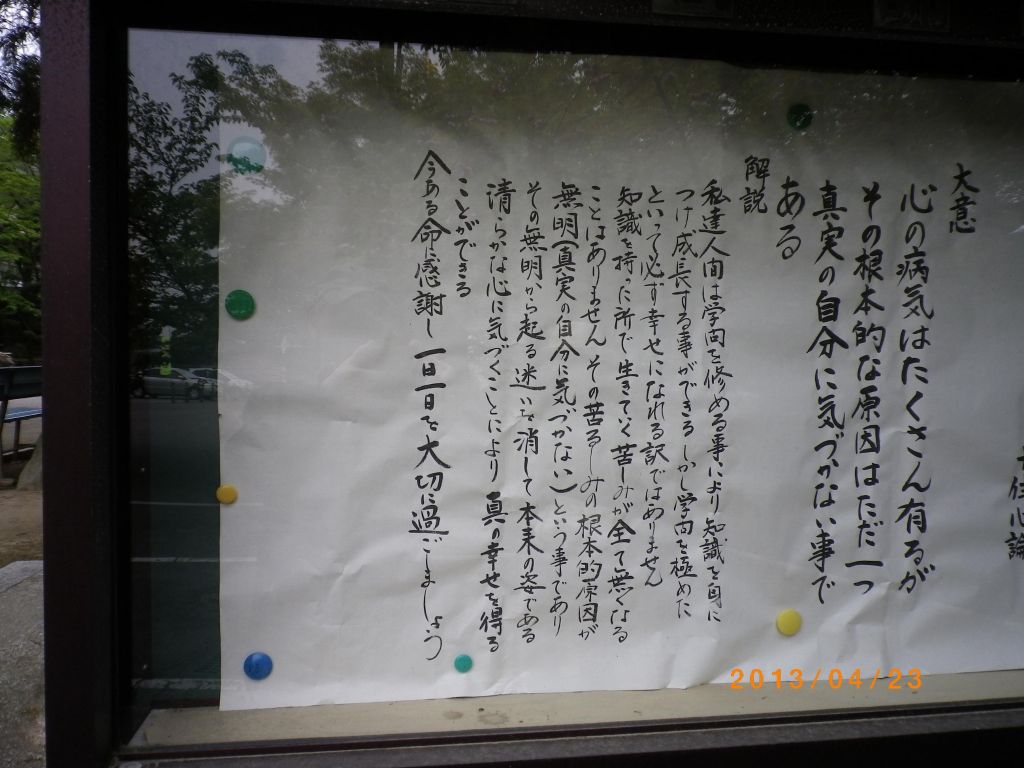 十住心論
大意
心の病気はたくさん有るが
その根本的な原因はただ一つ
真実の自分に気づかない事で
ある
解説
私達人間は学問を修める事により知識を身に
つけ成長する事ができるしかし学問を極めた
といって必ず幸せになれる訳ではありません
知識を持った所で生きていく苦しみが全て無くなる
ことはありませんその苦るしみの根本的原因が
無明(真実の自分に気づかない)という事であり
その無明から起る迷いを消して本来の姿である
清らかな心に気づくことにより真の幸せを得る
ことができる
今ある命に感謝し一日一日を大切に過ごしましょう
2013/04/23